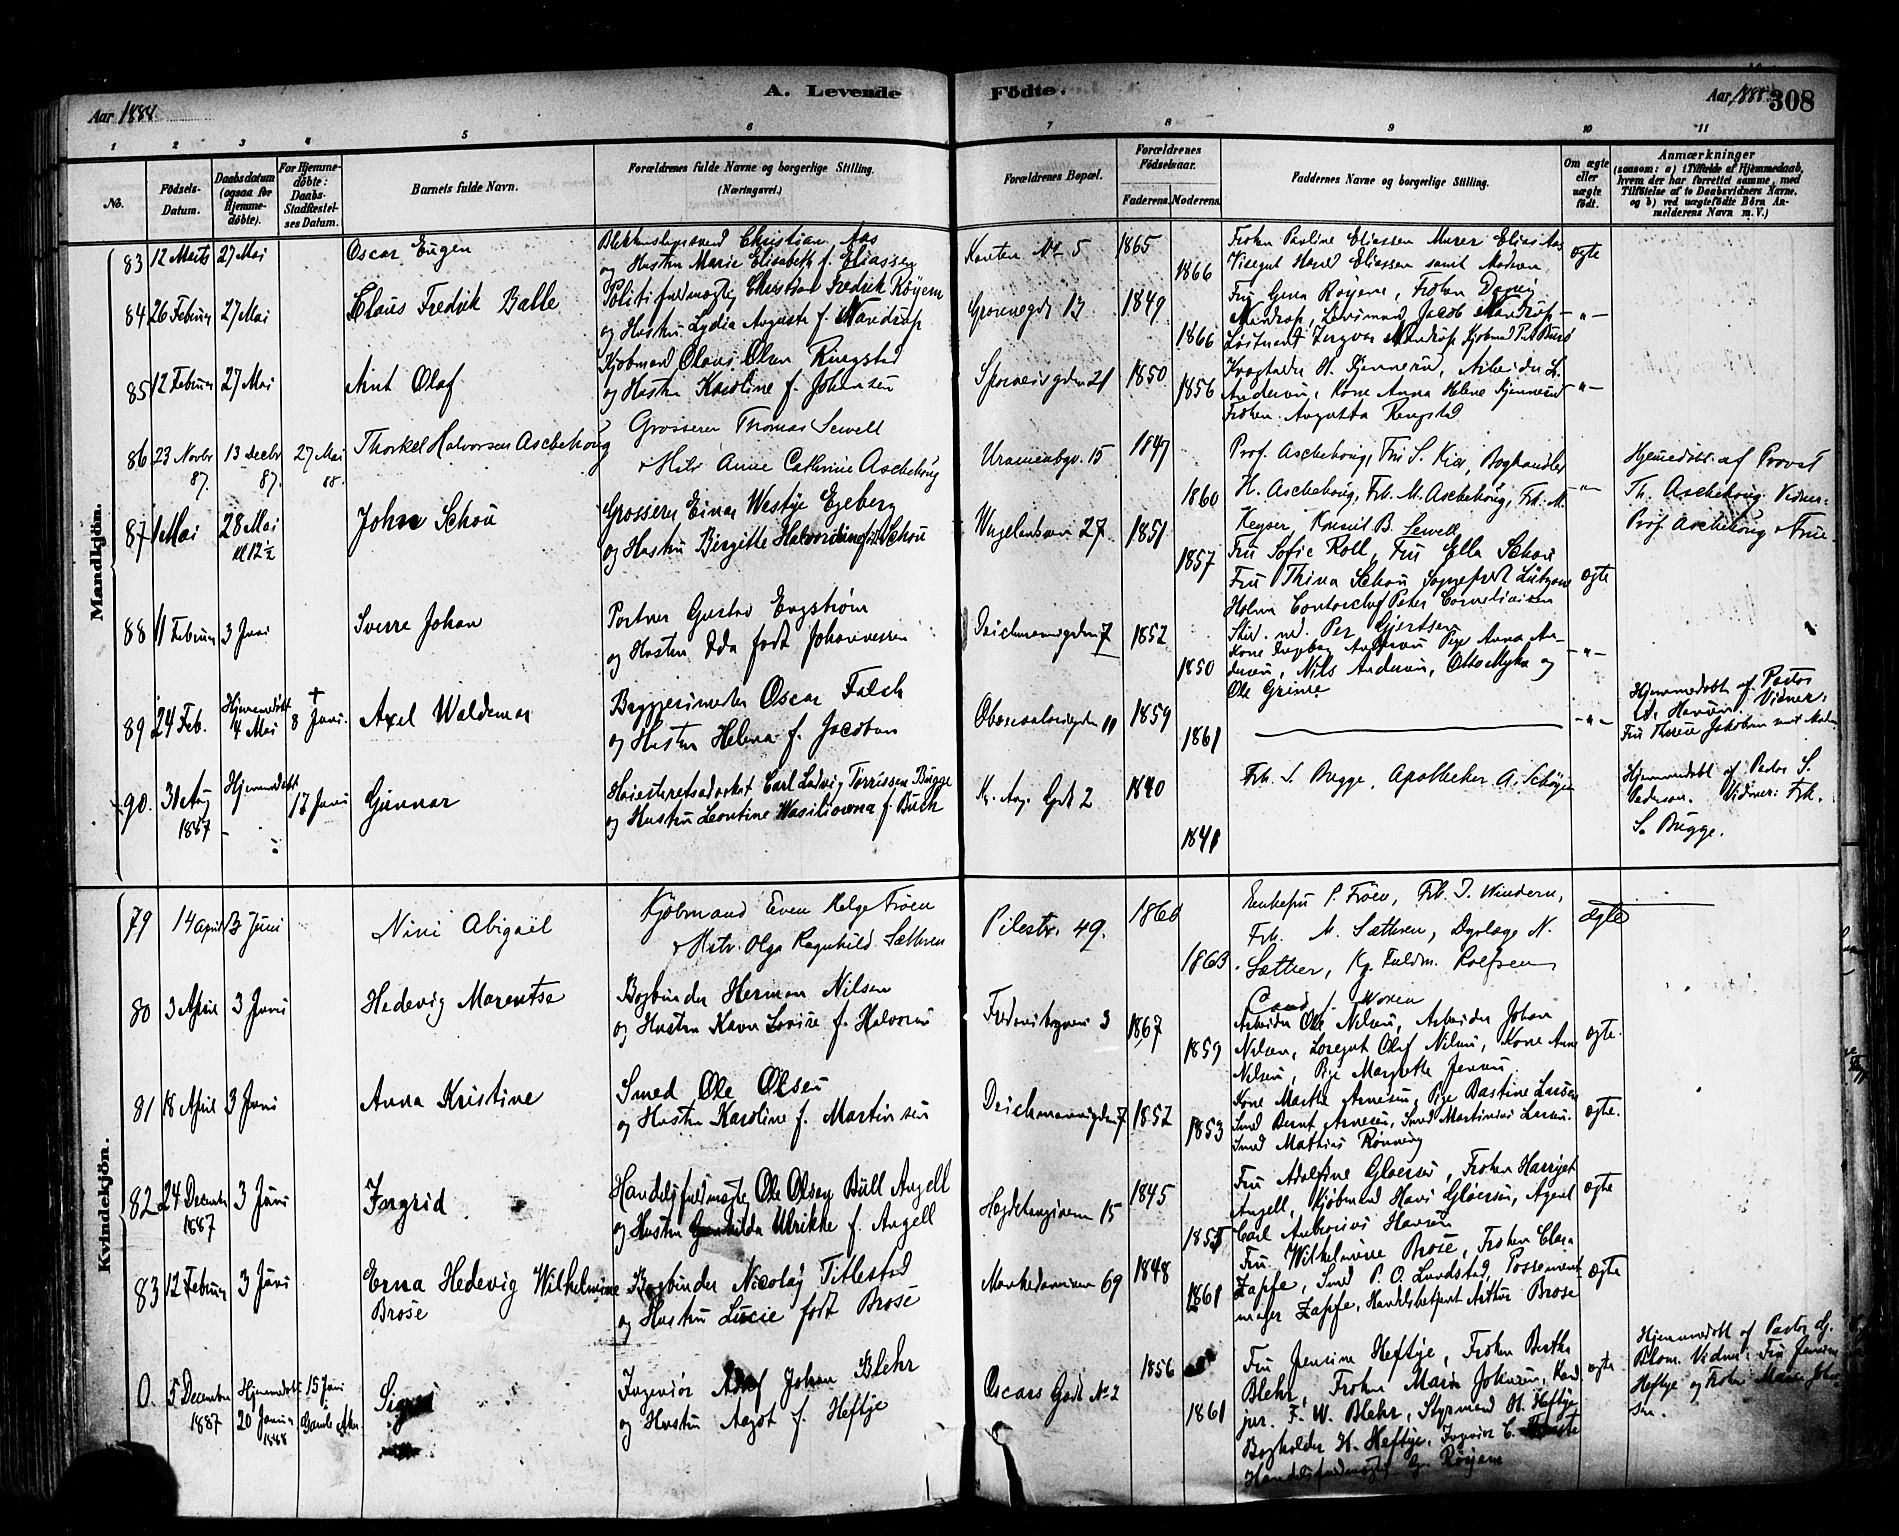 Aar 1888.
A. Levende Födte.
Aar 1888. 308
1 2 3 4 5 6 7 8 9 10 11
No.
Födsels-Datum.
Daabsdatum (ogsaa for Hjemme-döbte).
For Hjemme-döbte: Daabs-Stadfæstel-ses Datum.
Barnets fulde Navn.
Forældrenes fulde Navne og borgerlige Stilling. (Næringsvei.)
Forældrenes Bopæl.
Forældrenes Födselsaar.
Faderens. Moderens.
Faddernes Navne og borgerlige Stilling.
Om ægte eller uægte födt.
Anmærkninger
(saasom: a) i Tilfælde af Hjemmedaab, hvem der har forrettet samme, med Tilföielse af to Daabsvidners Navne, og b) ved uægtefödte Börn An-melderens Navn m. V.)
Mandkjön.
83 12 Marts 27 Mai Oscar Eugen
Christian Aas
og Hustru Marie Elisabeth f. Eliassen
No 5 1865 1866
Frøken Pauline Eliassen Murer Elias Aas
Visergut Eliassen samt Moderen
ægte
84 26 Februar 27 Mai Claus Fredrik Balle
Politifuldmægtig Christian Fredrik Røyem
og Hustru Lydia Augusta f. Nandrup
Grønnegd 13 1849 1866
Fru Røyem, Frøken Dagny
Nandrup, Jacob Nandrup
Løitnant Yngvar Nandrup Kjøbmd
- " -
85 12 Februar 27 Mai Arnt Olaf
Kjøbmand Olaus Olsen Ringstad
og Hustru Karoline f. Johansen
Sporveisgaden 21 1850 1856
Andersen, Kone Anna Helene
Frøken Augusta Ringstad
- " -
86 23 Novbr 87. 13 Decbr 87. 27 Mai 88. Thorkel Halvorsen Aschehoug
Grosserer Thomas Sewell
& Hstr. Anne Cathrine Aschehoug
Uranienbgv. 15 1847 1860
Prof. Aschehoug, Fru S. Kiær, Boghandler
H. Aschehoug, Frk. M. Aschehoug, Frk. M.
Keyser, Konsul B. Sewell
- " -
Hjemmedøbt af Provst
Th. Aschehoug. Vidner:
Prof. Aschehoug & Frue.
87 1 Mai 28 Mai kl 12½ John Schou
Grosserer Einar Westye Egeberg
og Hustru Birgitte Halvordine f. Schou
Wergelandsveien 27 1851 1857
Fru Sofie Roll, Fru Ella Schou
Fru Thina Schou
Holm Contorchef Peter Corneliussen
ægte
88 11 Februar 3 Juni Sverre Johan
Portner Gustav Engstrøm
og Hustru Ida født Johannessen
Deichmannsgaden 7 1852 1850
Stud. med. Per Gjertsen
Kone Ingebor Andersen Pige Anna An-
dersen, Nils Andersen, Otto Myhre og
Ole Grinse
- " -
89 24 Feb. Hjemmedøbt 4 Mai + 8 Juni. Axel Waldemar
Byggmester Oscar Falch
og Hustru Helena f. Jacobsen
Observatoriegaden 11 1859 1861
- " -
Hjemmedøbt af Pastor
Hansen. Vidner:
Fru Therese Jakobsen samt Moderen
90. 31 Aug 1887 Hjemmedøbt 17 Juni Gunnar
Høiesteretsadvokat Carl Ludvig Torrissen Bugge
og Hustru Leontine Wasiliowna f. Buch
Kr. Aug. Gd 2 1840 1841
Frk. S. Bugge. Apotheker A. Schøyen
Hjemmedøbt af Pastor S.
Pedersen. Vidner: Frk.
S. Bugge.
Kvindekjön.
79 14 April 3 Juni Nini Abigael
Kjøbmand Even Helge Frøen
& Hstr. Olga Ragnhild Sæthren
Pilestr. 49. 1860 1863
Enkefru P. Frøen, Frk. J. Windern,
Frk. M. Sæthren, Dyrlæge N.
Sæther, Kg. Fuldm. Rolfsen
ægte
80 3 April 3 Juni Hedevig Marentse
Bogbinder Herman Nilsen
og Hustru Karen Lovise f. Halvorsen
Fredensborgveien 3 1867 1859
Arbeider Ole Nilsen, Arbeider Johan
Nilsen, Olaf Nilsen, Kone Anne
Nilsen, Pige Margrethe Jensen
ægte.
81 18 April 3 Juni Anna Kristine
Smed Ole Olsen
og Hustru Karoline f. Martinsen
Deichmannsgaden 7 1852 1853
Kone Marthe Arnesen, Pige Bastine Larsen
Smed Bernt Arnesen, Smed Martinius Larsen.
Smed Mathias Rønning
ægte.
82 24 December 1887 3 Juni Ingrid
Handelsfuldmægtig Ole Olsen Bull Angell
og Hustru Ulrikke f. Angell
Hegdehaugsveien 15 1845 1855
Fru Adolfine Gløersen, Frøken Harriet
Angell, Kjøbmand Hans Gløersen, Agent
Carl Ambrosius Hansen
ægte
83 12 Februar 3 Juni Erna Hedevig Wilhelmine Brose
Bogbinder Nicolay Titlestad
og Hustru Lucie født Brose
Markveien 69 1848 1861
Fru Wilhelmine Brose, Frøken Clara
Zapffe, Smed P. O. Lundstad, Possement-
mager Zapffe, Handelsbetjent Arthur Brose
ægte
0. 5 December 1887 Hjemmedøbt 20 Januar 1888 15 Juni Gamle Aker Sigrid
Ingeniør Adolf Johan Blehr
og Hustru Aagot f. Heftye
Oscars Gade No 2 1856 1861
Fru Jensine Heftye, Frøken Berthe
Blehr, Frøken Marie Johnsen, Kand
jur. F. W. Blehr, Styrmand H. Heftye,
Bogholder H. Heftye, Ingeniør C.
Handelsfuldmægtig Røyem
ægte
Hjemmedøbt af Pastor Gj.
Blom. Vidner: Fru Jensine
Heftye og Frøken Marie John-
sen.